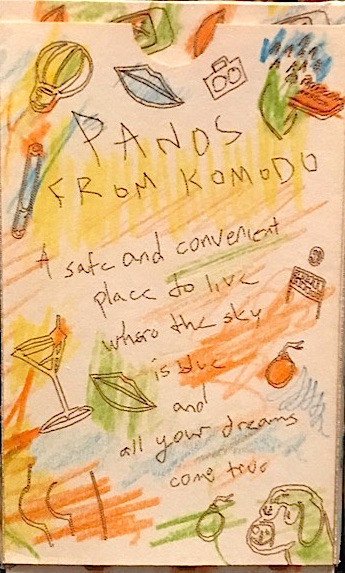 PANOS
FROM KOMODO
A safe and convenient
place to live
where the sky
is blue
and
all your dreams
come true